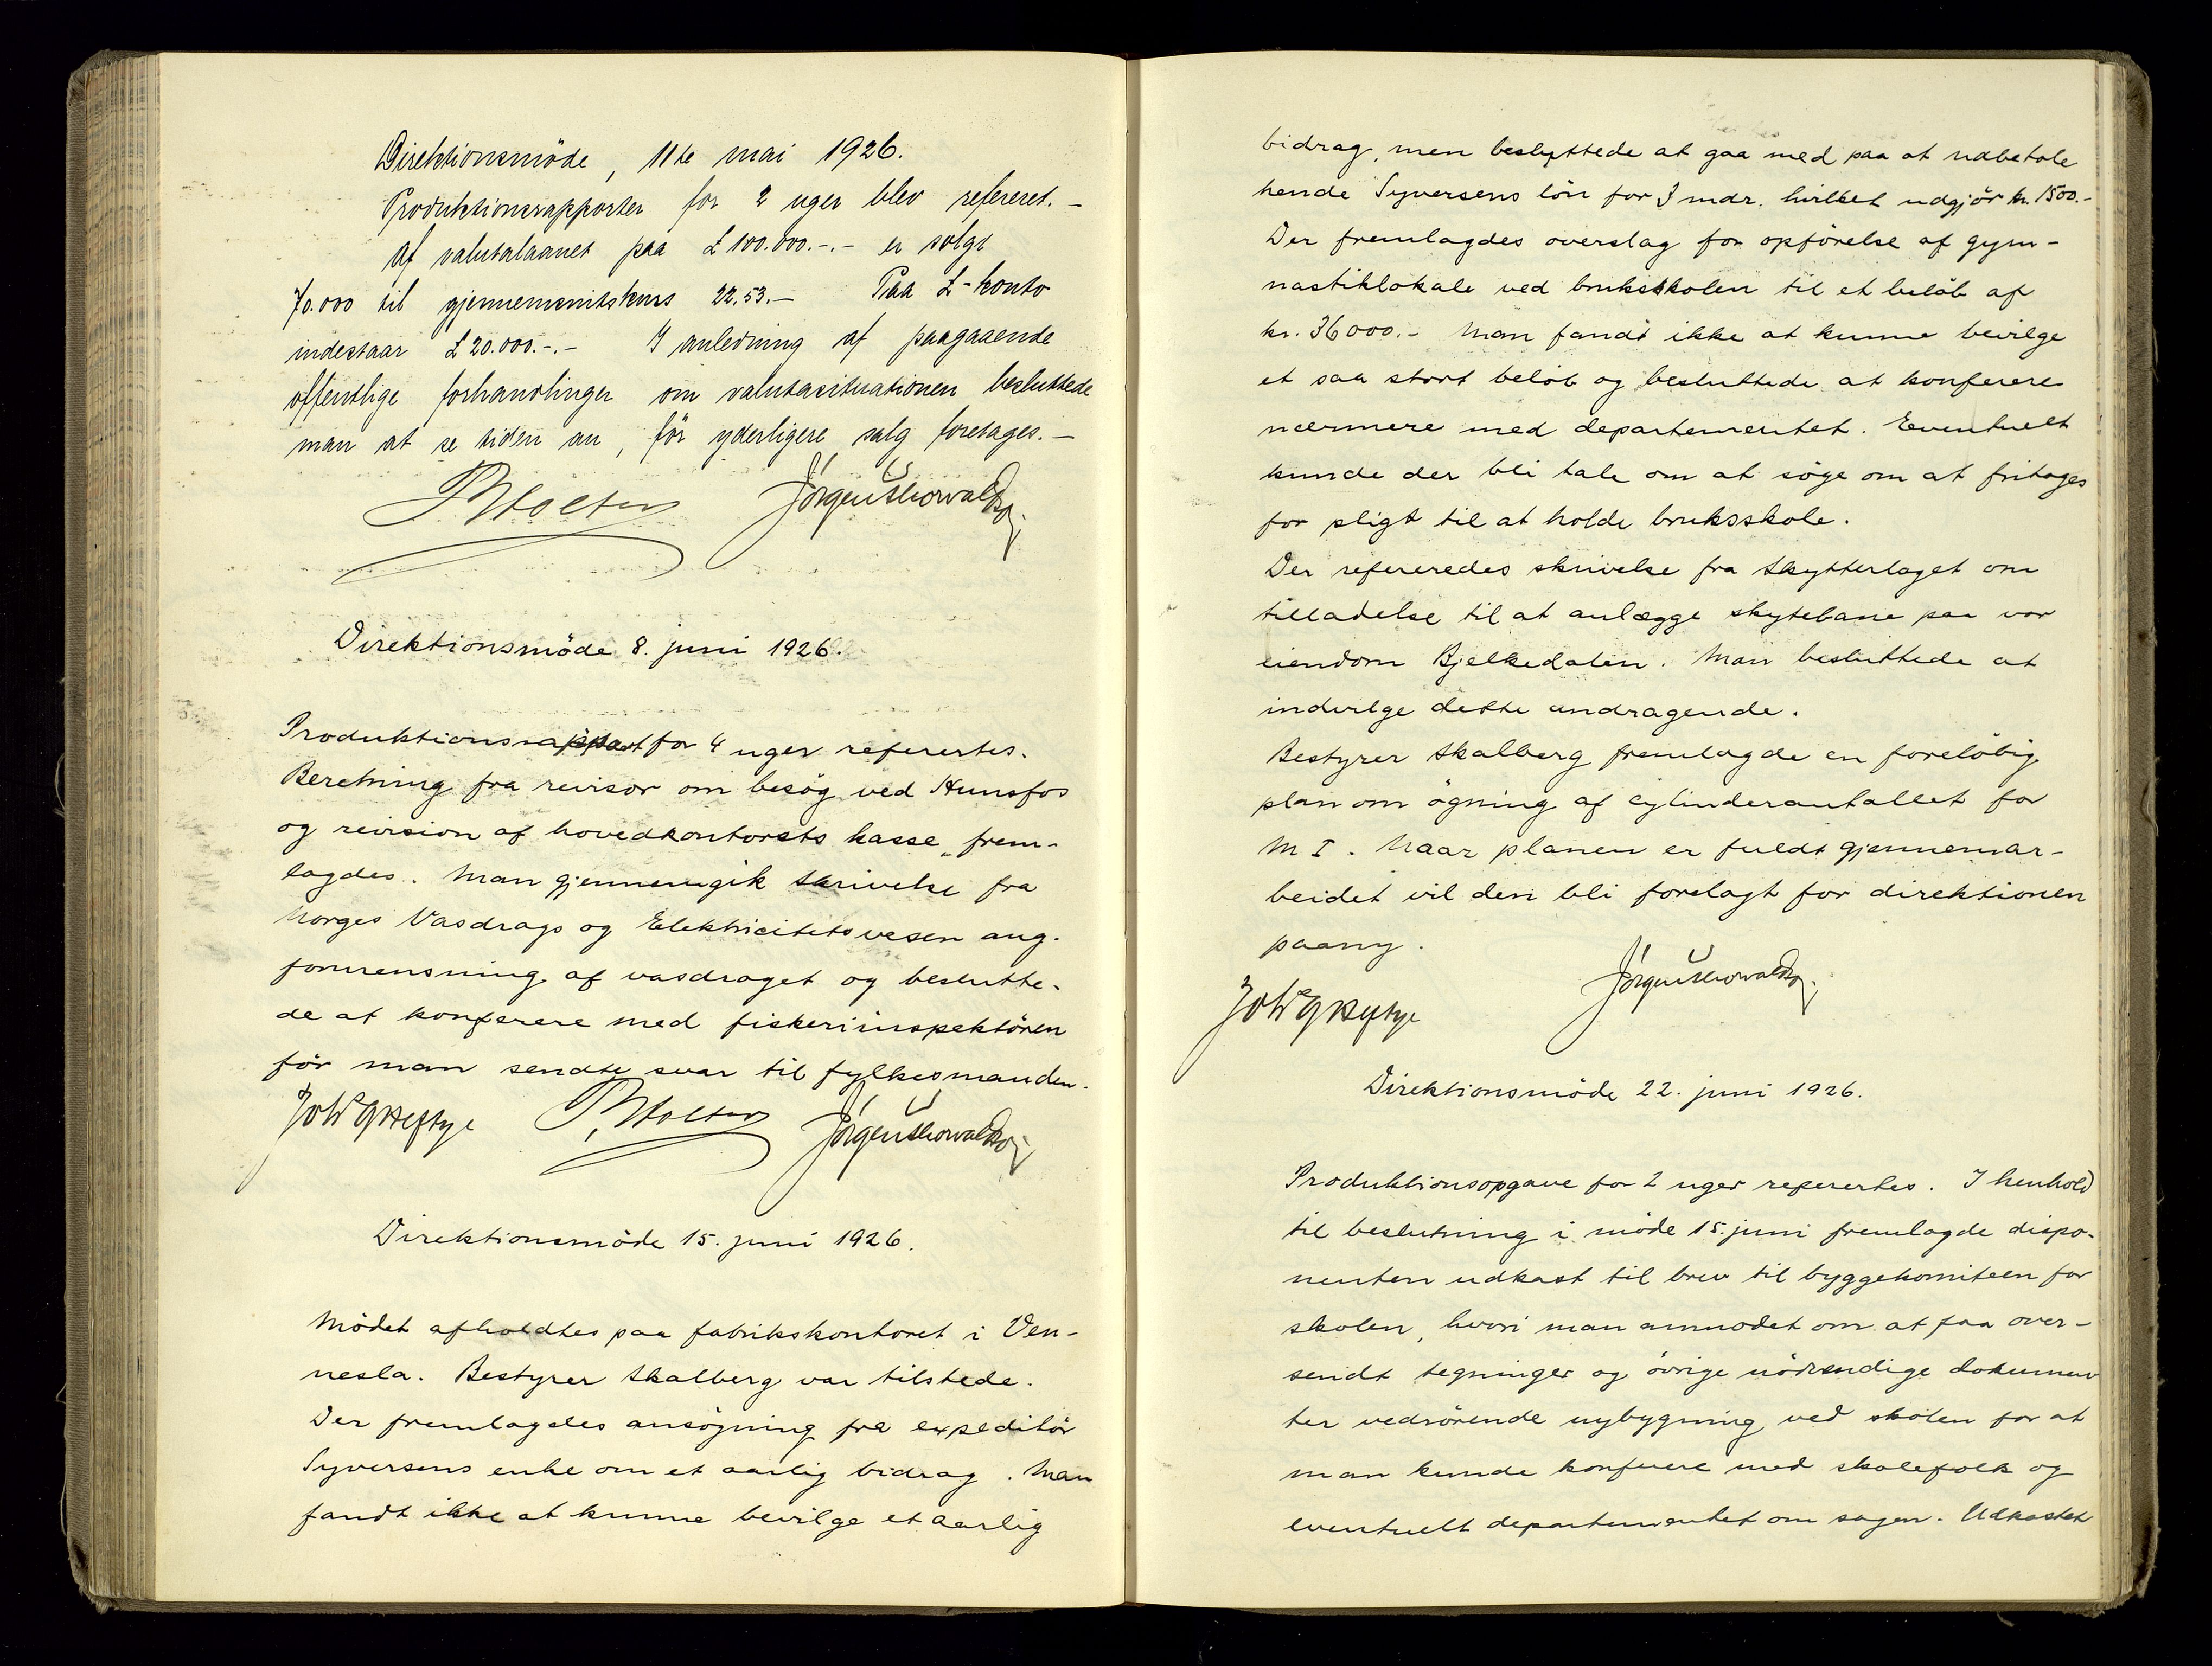 Direktionsmöde, 11te mai 1926.
Produktionsrapporter for 2 uger blev refereret. –
Af valutalaanet paa £ 100.000.–.– er solgt
70.000 til gjennemsnitskurs 22.53.– Paa £-konto
indestaar £ 20.000.–.– I anledning af paagaaende
offentlige forhandlinger om valutasituationen besluttede
man at se tiden an, för yderligere salg foretages. –
Jörgen Thorwaldson
Direktionsmöde 8. juni 1926.
Produktionsrapport for 4 uger refertes.
Beretning fra revisor om besög ved Hunsfos
og revision af hovedkontorets kasse frem-
lagdes. Man gjennemgik skrivelse fra
Norges Vasdrags og Elektricitetsvesen ang.
forurensning af vasdraget og beslutte-
de at konferere med fiskeriinspektören
för man sendte svar til fylkesmanden.
Joh G Heftye Jörgen Thorwaldson
Direktionsmöde 15. juni 1926.
Mödet afholdtes paa fabrikskontoret i Ven-
nesla. Bestyrer Skalberg var tilstede.
Der fremlagdes ansögning fra expeditör
Syversens enke om et aarlig bidrag. Man
fandt ikke at kunne bevilge et aarlig
bidrag, men besluttede at gaa med paa at udbetale
hende Syversens lön for 3 mdr. hvilket udgjör kr. 1500.–
Der fremlagdes overslag for opförelse af gym-
nastiklokale ved bruksskolen til et belöb af
kr. 36000.– Man fandt ikke at kunne bevilge
et saa stort belöb og besluttede at konferere
nærmere med departementet. Eventuelt
kunde der bli tale om at söge om at fritages
for pligt til at holde bruksskole.
Der refereredes skrivelse fra Skytterlaget om
tilladelse til at anlægge skytebane paa vor
eiendom Bjelkedalen. Man besluttede at
indvilge dette andragende.
Bestyrer Skalberg fremlagde en forelöbig
plan om ögning af cylinderantallet for
M I. Naar planen er fuldt gjennemar-
beidet vil den bli forelagt for direktionen
paany.
Joh G Heftye Jörgen Thorwaldson
Direktionsmöde 22. juni 1926.
Produktionsopgave for 2 uger refertes. I henhold
til beslutning i möde 15. juni fremlagde dispo-
nenten udkast til brev til byggekomiteen for
skolen, hvori man anmodet om at faa over-
sendt tegninger og övrige nödvendige dokumen
ter vedrörende nybygning ved skolen for at
man kunde konferere med skolefolk og
eventuelt departementet om sagen. Udkastet